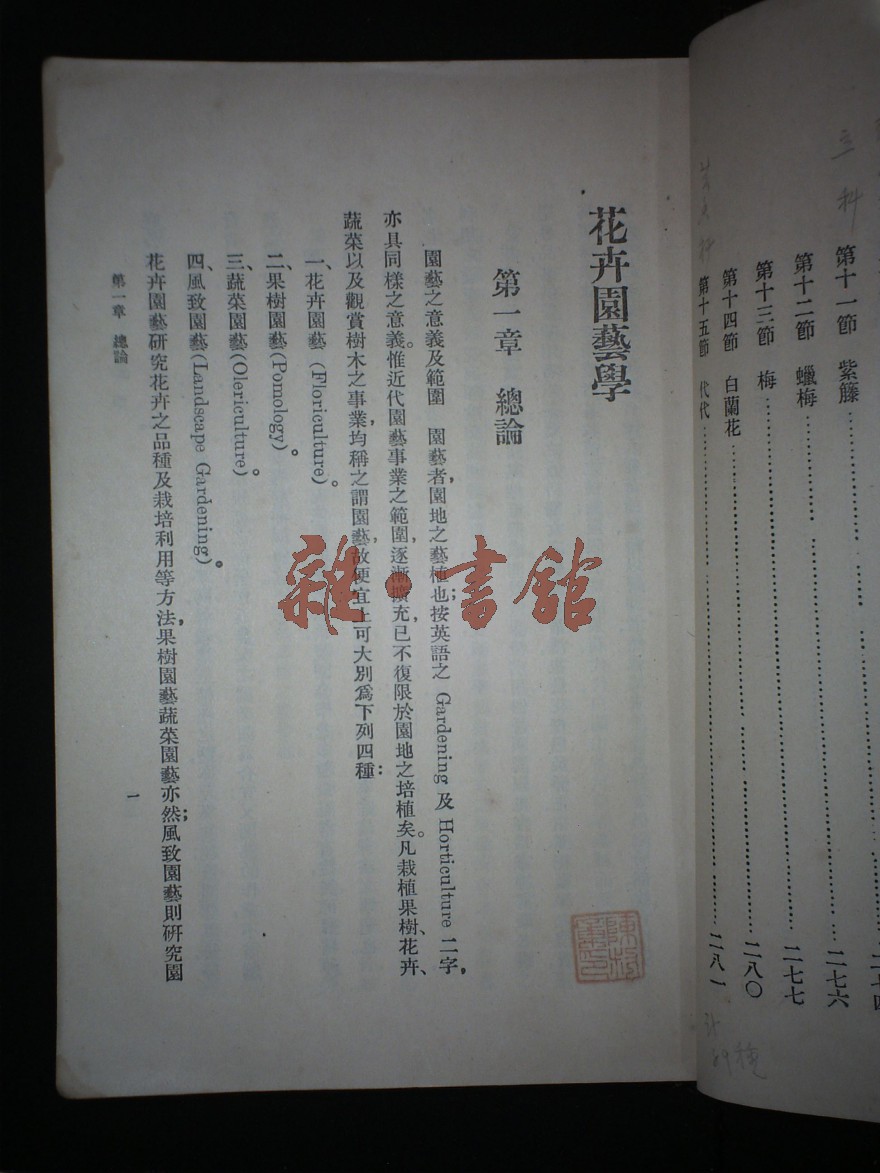 第十一節　紫籐……二七六
第十二節　蠟梅……二七七
第十三節　梅……二八〇
第十四節　白蘭花……二八一
第十五節　代代……
花卉園藝學
第一章　總論
園藝之意義及範圍　園藝者，園地之藝植也；按英語之 Gardening 及 Horticulture 二字，
亦具同樣之意義。惟近代園藝事業之範圍，逐漸擴充，已不復限於園地之培植矣。凡栽植果樹、花卉、
蔬菜以及觀賞樹木之事業，均稱之謂園藝，故便宜上可大別爲下列四種：
一、花卉園藝 (Floriculture)。
二、果樹園藝 (Pomology)。
三、蔬菜園藝 (Olericulture)。
四、風致園藝 (Landscape Gardening)。
花卉園藝研究花卉之品種及栽培利用等方法，果樹園藝蔬菜園藝亦然；風致園藝則研究園
第一章　總論
一
雜·書館